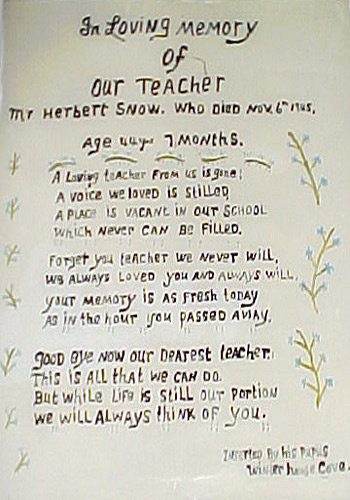 In Loving Memory
Of
Our Teacher
Mr Herbert Snow. Who Died Nov. 6th
Age 44 yrs 7 Months.
A Loving teacher from us is gone;
A voice we loved is stilled
A place is vacant in our School
Which never can be filled.
Forget you teacher we never will,
We always loved you and always will,
Your memory is as fresh today
As in the hour you passed away.
Good Bye now our dearest teacher.
This is all that we can do.
But while life is still our portion
We will always think of you.
Inserted By his Pupils
Winterhouse Cove.